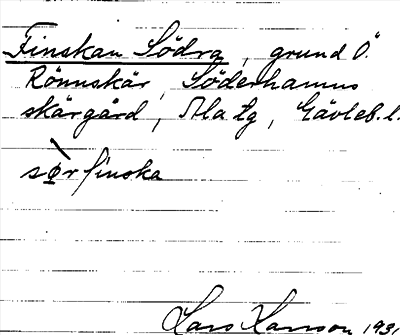 Finskan Södra, grund Ö.
Rönnskär, Söderhamns
skärgård, Ala tg, Gävleb. l.
sø̀r finska
Lars Hanson 1931